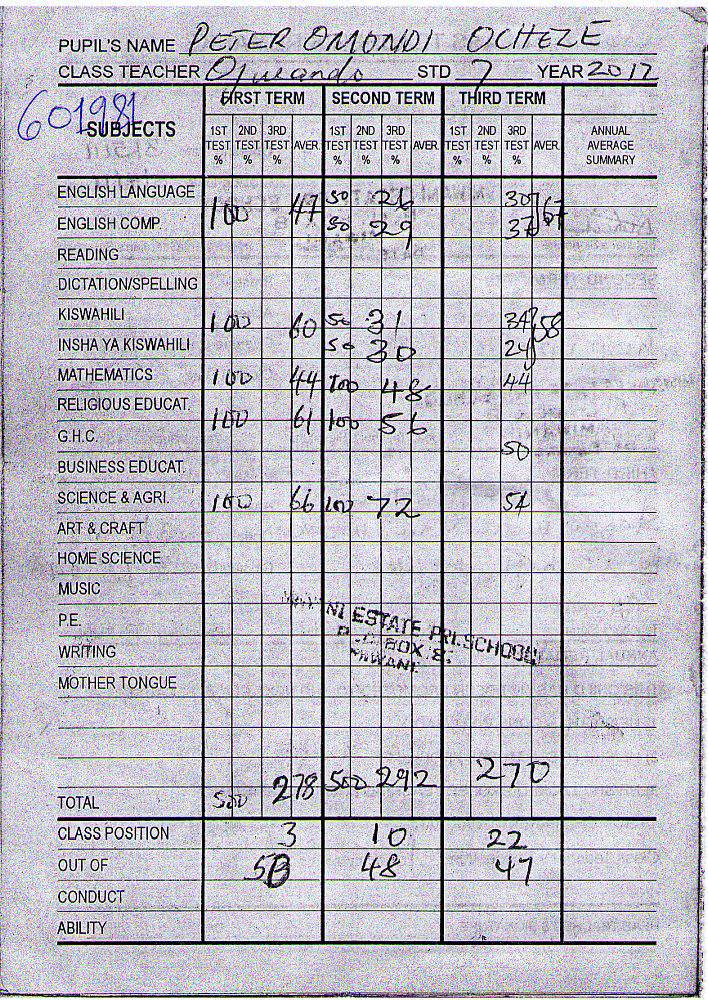 PUPIL'S NAME PETER OMONDI OCHELE
CLASS TEACHER Ojwando STD 7 YEAR 2017
601981
FIRST TERM SECOND TERM THIRD TERM
SUBJECTS 1ST TEST % 2ND TEST % 3RD TEST % AVER. 1ST TEST % 2ND TEST % 3RD TEST % AVER. 1ST TEST % 2ND TEST % 3RD TEST % AVER. ANNUAL AVERAGE SUMMARY
ENGLISH LANGUAGE 100 47 50 26 30 67
ENGLISH COMP. 50 29 37
READING
DICTATION/SPELLING
KISWAHILI 100 60 50 31 34 58
INSHA YA KISWAHILI 50 30 24
MATHEMATICS 100 44 100 48 44
RELIGIOUS EDUCAT. 100 61 100 56
G.H.C. 50
BUSINESS EDUCAT.
SCIENCE & AGRI. 100 66 100 72 51
ART & CRAFT
HOME SCIENCE
MUSIC
P.E.
NI ESTATE PRI. SCHOOL
BOX 8
WRITING
MOTHER TONGUE
TOTAL 500 278 500 292 270
CLASS POSITION 3 10 22
OUT OF 50 48 47
CONDUCT
ABILITY